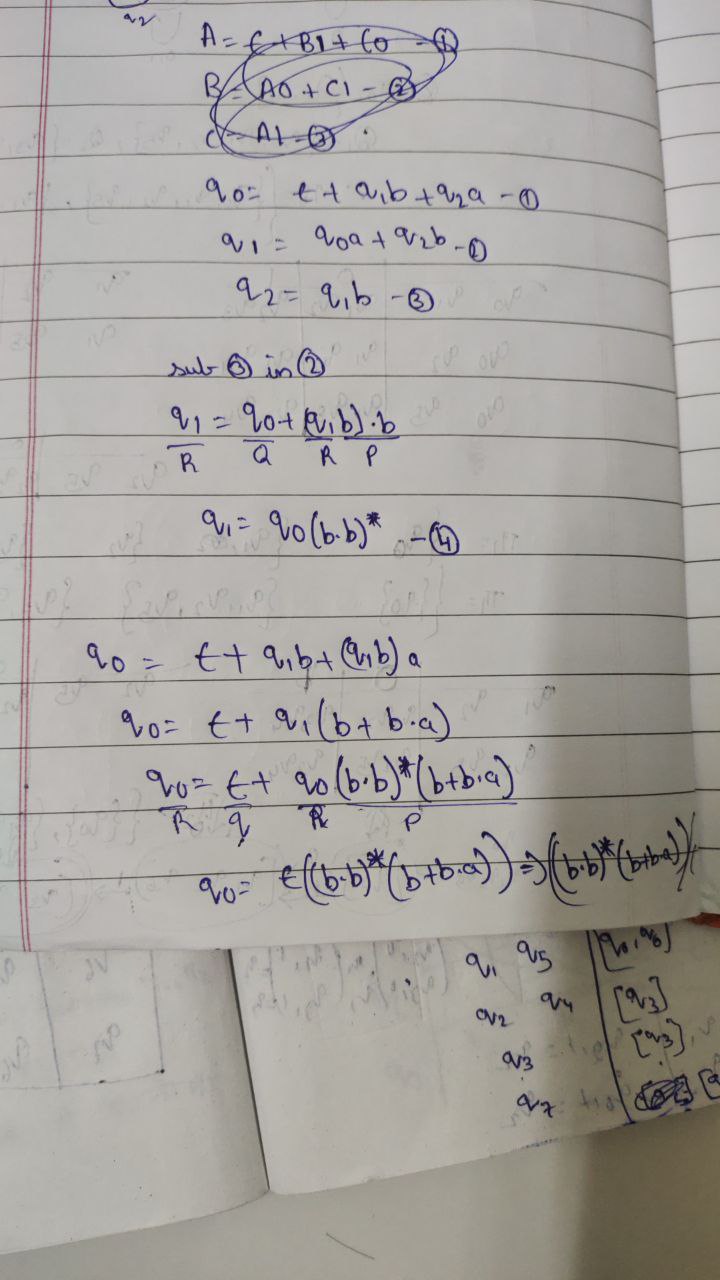 q2
A = ε + B1 + C0 - ①
B = A0 + C1 - ②
C = A1 - ③
q0 = ε + q1b + q2a - ①
q1 = q0a + q2b - ②
q2 = q1b - ③
sub ③ in ②
q1 = q0 + (q1b)·b
R Q R P
q1 = q0(b·b)* - ④
q0 = ε + q1b + (q1b)a
q0 = ε + q1(b + b·a)
q0 = ε + q0(b·b)*(b+b·a)
R q R P
q0 = ε((b·b)*(b+b·a)) ⇒ ((b·b)*(b+b·a))
q1 q5 [q0, q6]
q2 q4 [q3]
q3 [q3]
q7